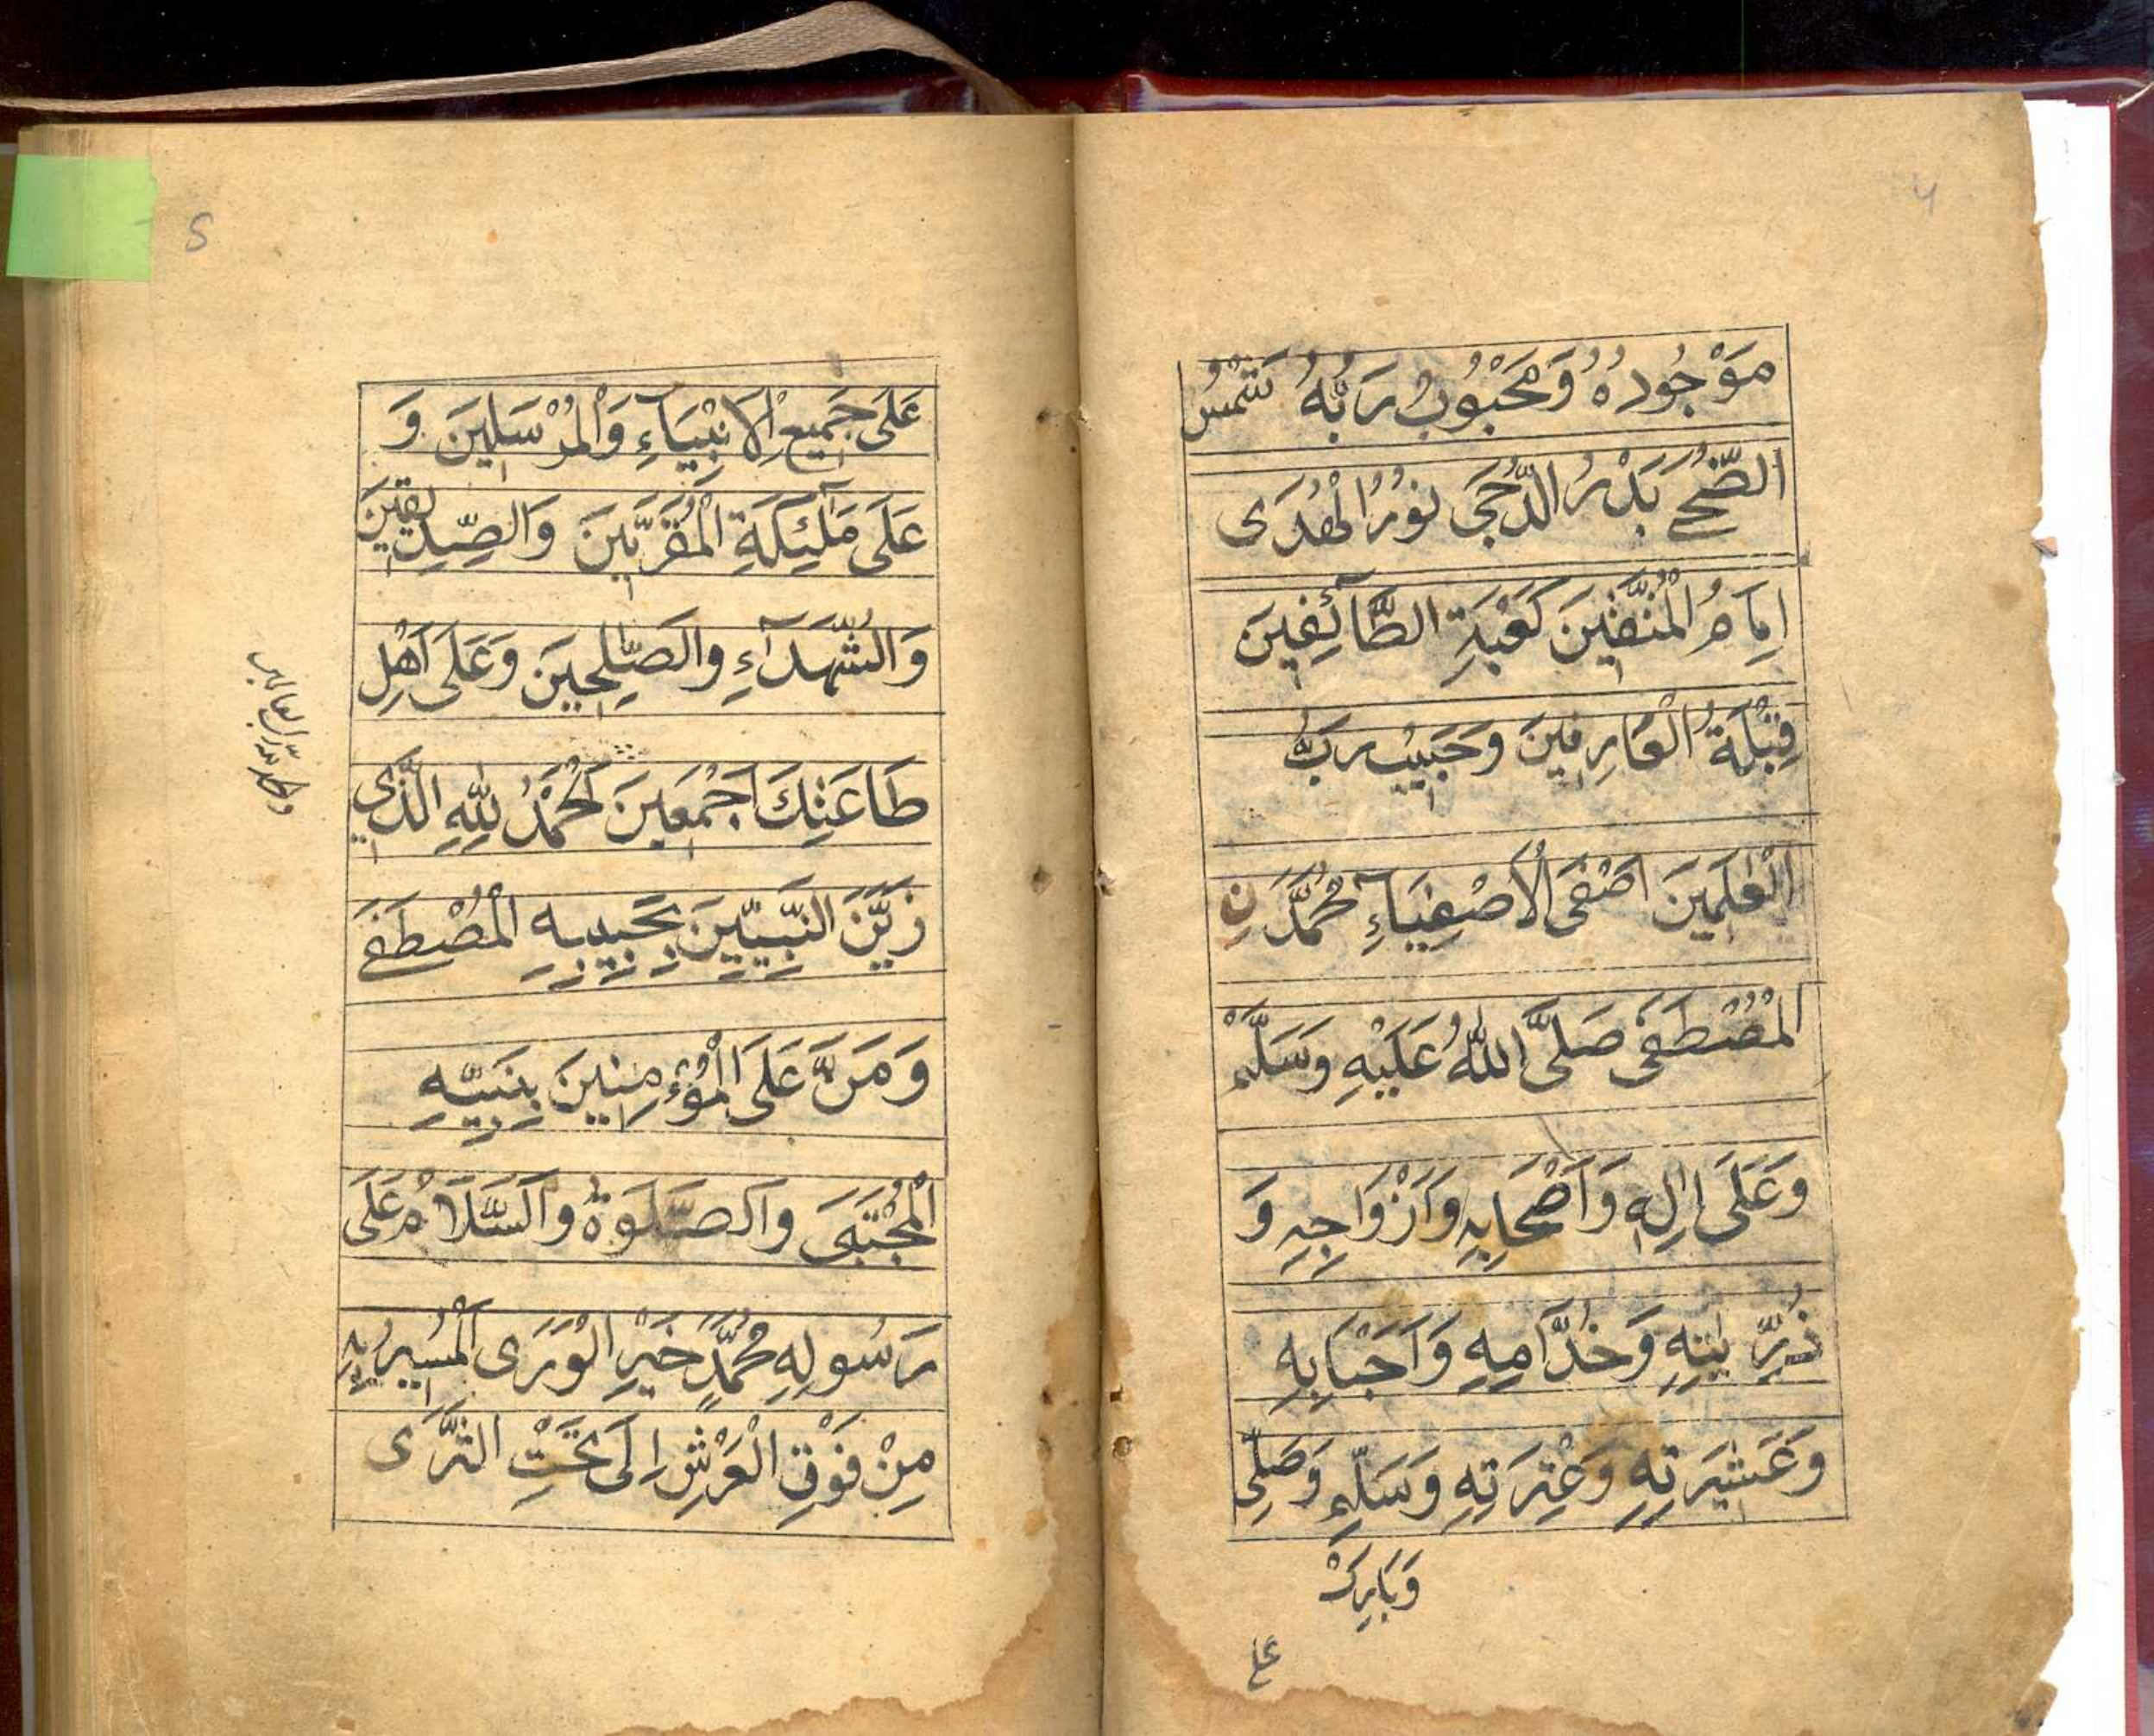 4
مَوْجُودُهُ وَمَحْبُوبُ رَبُّهُ شَمْسُ
الضُّحٰى بَدْرُ الدُّجَى نُوْرُ الْهُدَى
اِمَامُ الْمُتَّقِيْنَ كَعْبَةِ الطَّآئِفِينَ
قِبْلَةُ الْعَارِفِينَ وَحَبِيْبُ رَبُّ
الْعٰلَمِينَ اَصْفَى الْاَصْفِيَآءِ مُحَمَّدَ نِ
الْمُصْطَفَى صَلَّى اللّٰهُ عَلَيْهِ وَسَلَّمْ
وَعَلَى اٰلِهٖ وَاَصْحَابِهٖ وَاَزْوَاجِهٖ وَ
ذُرِّيّٰتِهِ وَخُدَّامِهِ وَاَحْبَابِهِ
وَعَشِيْرَتِهٖ وَعِتْرَتِهِ وَسَلِّمْ وَصَلِّى
وَبَارِكْ
على
5
عَلَى جَمِيعِ الْاَنْبِيَآءِ وَالْمُرْسَلِينَ وَ
عَلَى مَلٰٓئِكَةِ الْمُقَرَّبِيْنَ وَالصِّدِّيقِينَ
وَالشُّهَدَآءِ وَالصّٰلِحِيْنَ وَعَلَى اَهْلِ
طَاعَتِكَ اَجْمَعِينَ اَلْحَمْدُ لِلّٰهِ الَّذِي
زَيَّنَ النَّبِيِّيْنَ بِحَبِيْبِهِ الْمُصْطَفَى
وَمَنَّ عَلَى الْمُؤْمِنِيْنَ بِنَبِيِّهِ
الْمُجْتَبَى وَالصَّلٰوةُ وَالسَّلَامُ عَلَى
رَسُولِهِ مُحَمَّدٍ خَيْرِ الْوَرَى الْمُسِيْرُ بِهٖ
مِنْ فَوْقِ الْعَرْشِ اِلَى تَحْتِ الثَّرَى